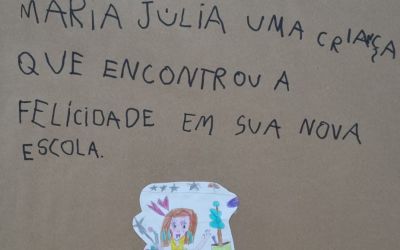 MARIA JÚLIA UMA CRIANÇA
QUE ENCONTROU A
FELÍCIDADE EM SUA NOVA
ESCOLA.